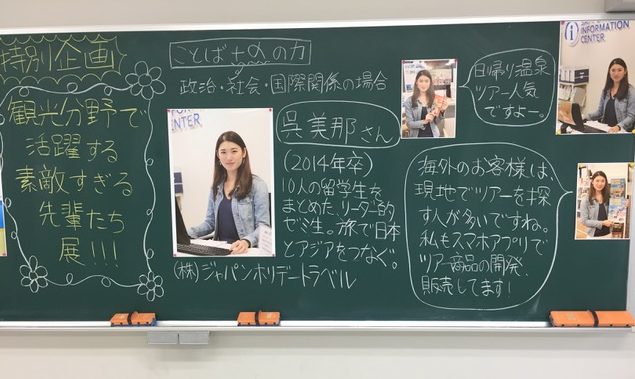 特別企画
観光分野で
活躍する
素敵すぎる
先輩たち
展!!!
ことば+αの力
政治・社会・国際関係の場合
INFORMATION
CENTER
呉美那さん
(2014年卒)
10人の留学生を
まとめた、リーダー的
ゼミ生。旅で日本
とアジアをつなぐ。
(株)ジャパンホリデートラベル
日帰り温泉
ツアー人気
ですよー。
i
INFORMATION
CENTER
海外のお客様は、
現地でツアーを探
す人が多いですね。
私もスマホアプリで
ツアー商品の開発、
販売してます!